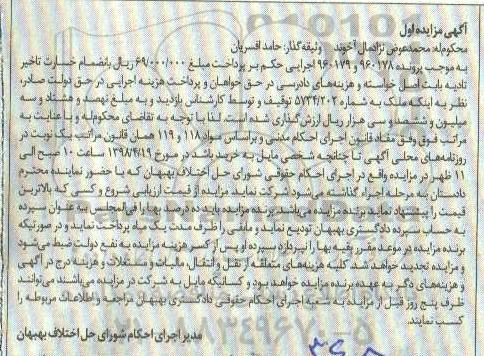 آگهی مزایده اول
محکوم‌له: محمدعوض نژادمال آخوند وثیقه‌گذار: حامد افسریان
به موجب پرونده ۹۶۰۱۷۸ و ۹۶۰۱۷۹ اجرایی حکم بر پرداخت مبلغ ۶۹/۰۰۰/۰۰۰ ریال بانضمام خسارت تاخیر
تادیه بابت اصل خواسته و هزینه‌های دادرسی در حق خواهان و پرداخت هزینه اجرایی در حق دولت صادر،
نظر به اینکه ملک به شماره ۵۷۳۴/۲۰۳ توقیف و توسط کارشناس بازدید و به مبلغ نهصد و هفتاد و سه
میلیون و ششصد و سی هزار ریال ارزش‌گذاری شده است. لذا با توجه به تقاضای محکوم‌له و با عنایت به
مراتب فوق وفق مفاد قانون اجرای احکام مدنی و براساس مواد ۱۱۸ و ۱۱۹ همان قانون مراتب یک نوبت در
روزنامه‌های محلی آگهی تا چنانچه شخصی مایل به خرید باشد در مورخ ۱۳۹۸/۴/۱۹ ساعت ۱۰ صبح الی
۱۱ ظهر در مزایده واقع در اجرای احکام حقوقی شورای حل اختلاف بهبهان که با حضور نماینده محترم
دادستان به مرحله اجراء گذاشته می‌شود شرکت نماید مزایده از قیمت ارزیابی شروع و کسی که بالاترین
قیمت را پیشنهاد نماید برنده مزایده می‌باشد برنده مزایده باید ده درصد بها را فی‌المجلس به عنوان سپرده
به حساب سپرده دادگستری بهبهان تودیع نماید و مابقی را ظرف مدت یک ماه پرداخت نماید و در صورتیکه
برنده مزایده در موعد مقرر بقیه بها را نپردازد سپرده او پس از کسر هزینه مزایده به نفع دولت ضبط می‌شود
و مزایده تجدید خواهد شد. کلیه هزینه‌های متعلقه از نقل و انتقال، مالیات و مستغلات و هزینه درج در آگهی
و هزینه‌های دگر به عهده برنده مزایده خواهد بود و کسانیکه مایل به شرکت در مزایده می‌باشند می‌توانند
ظرف پنج روز قبل از مزایده به شعبه اجرای احکام حقوقی دادگستری بهبهان مراجعه و اطلاعات مربوطه را
کسب نمایند.
مدیر اجرای احکام شورای حل اختلاف بهبهان